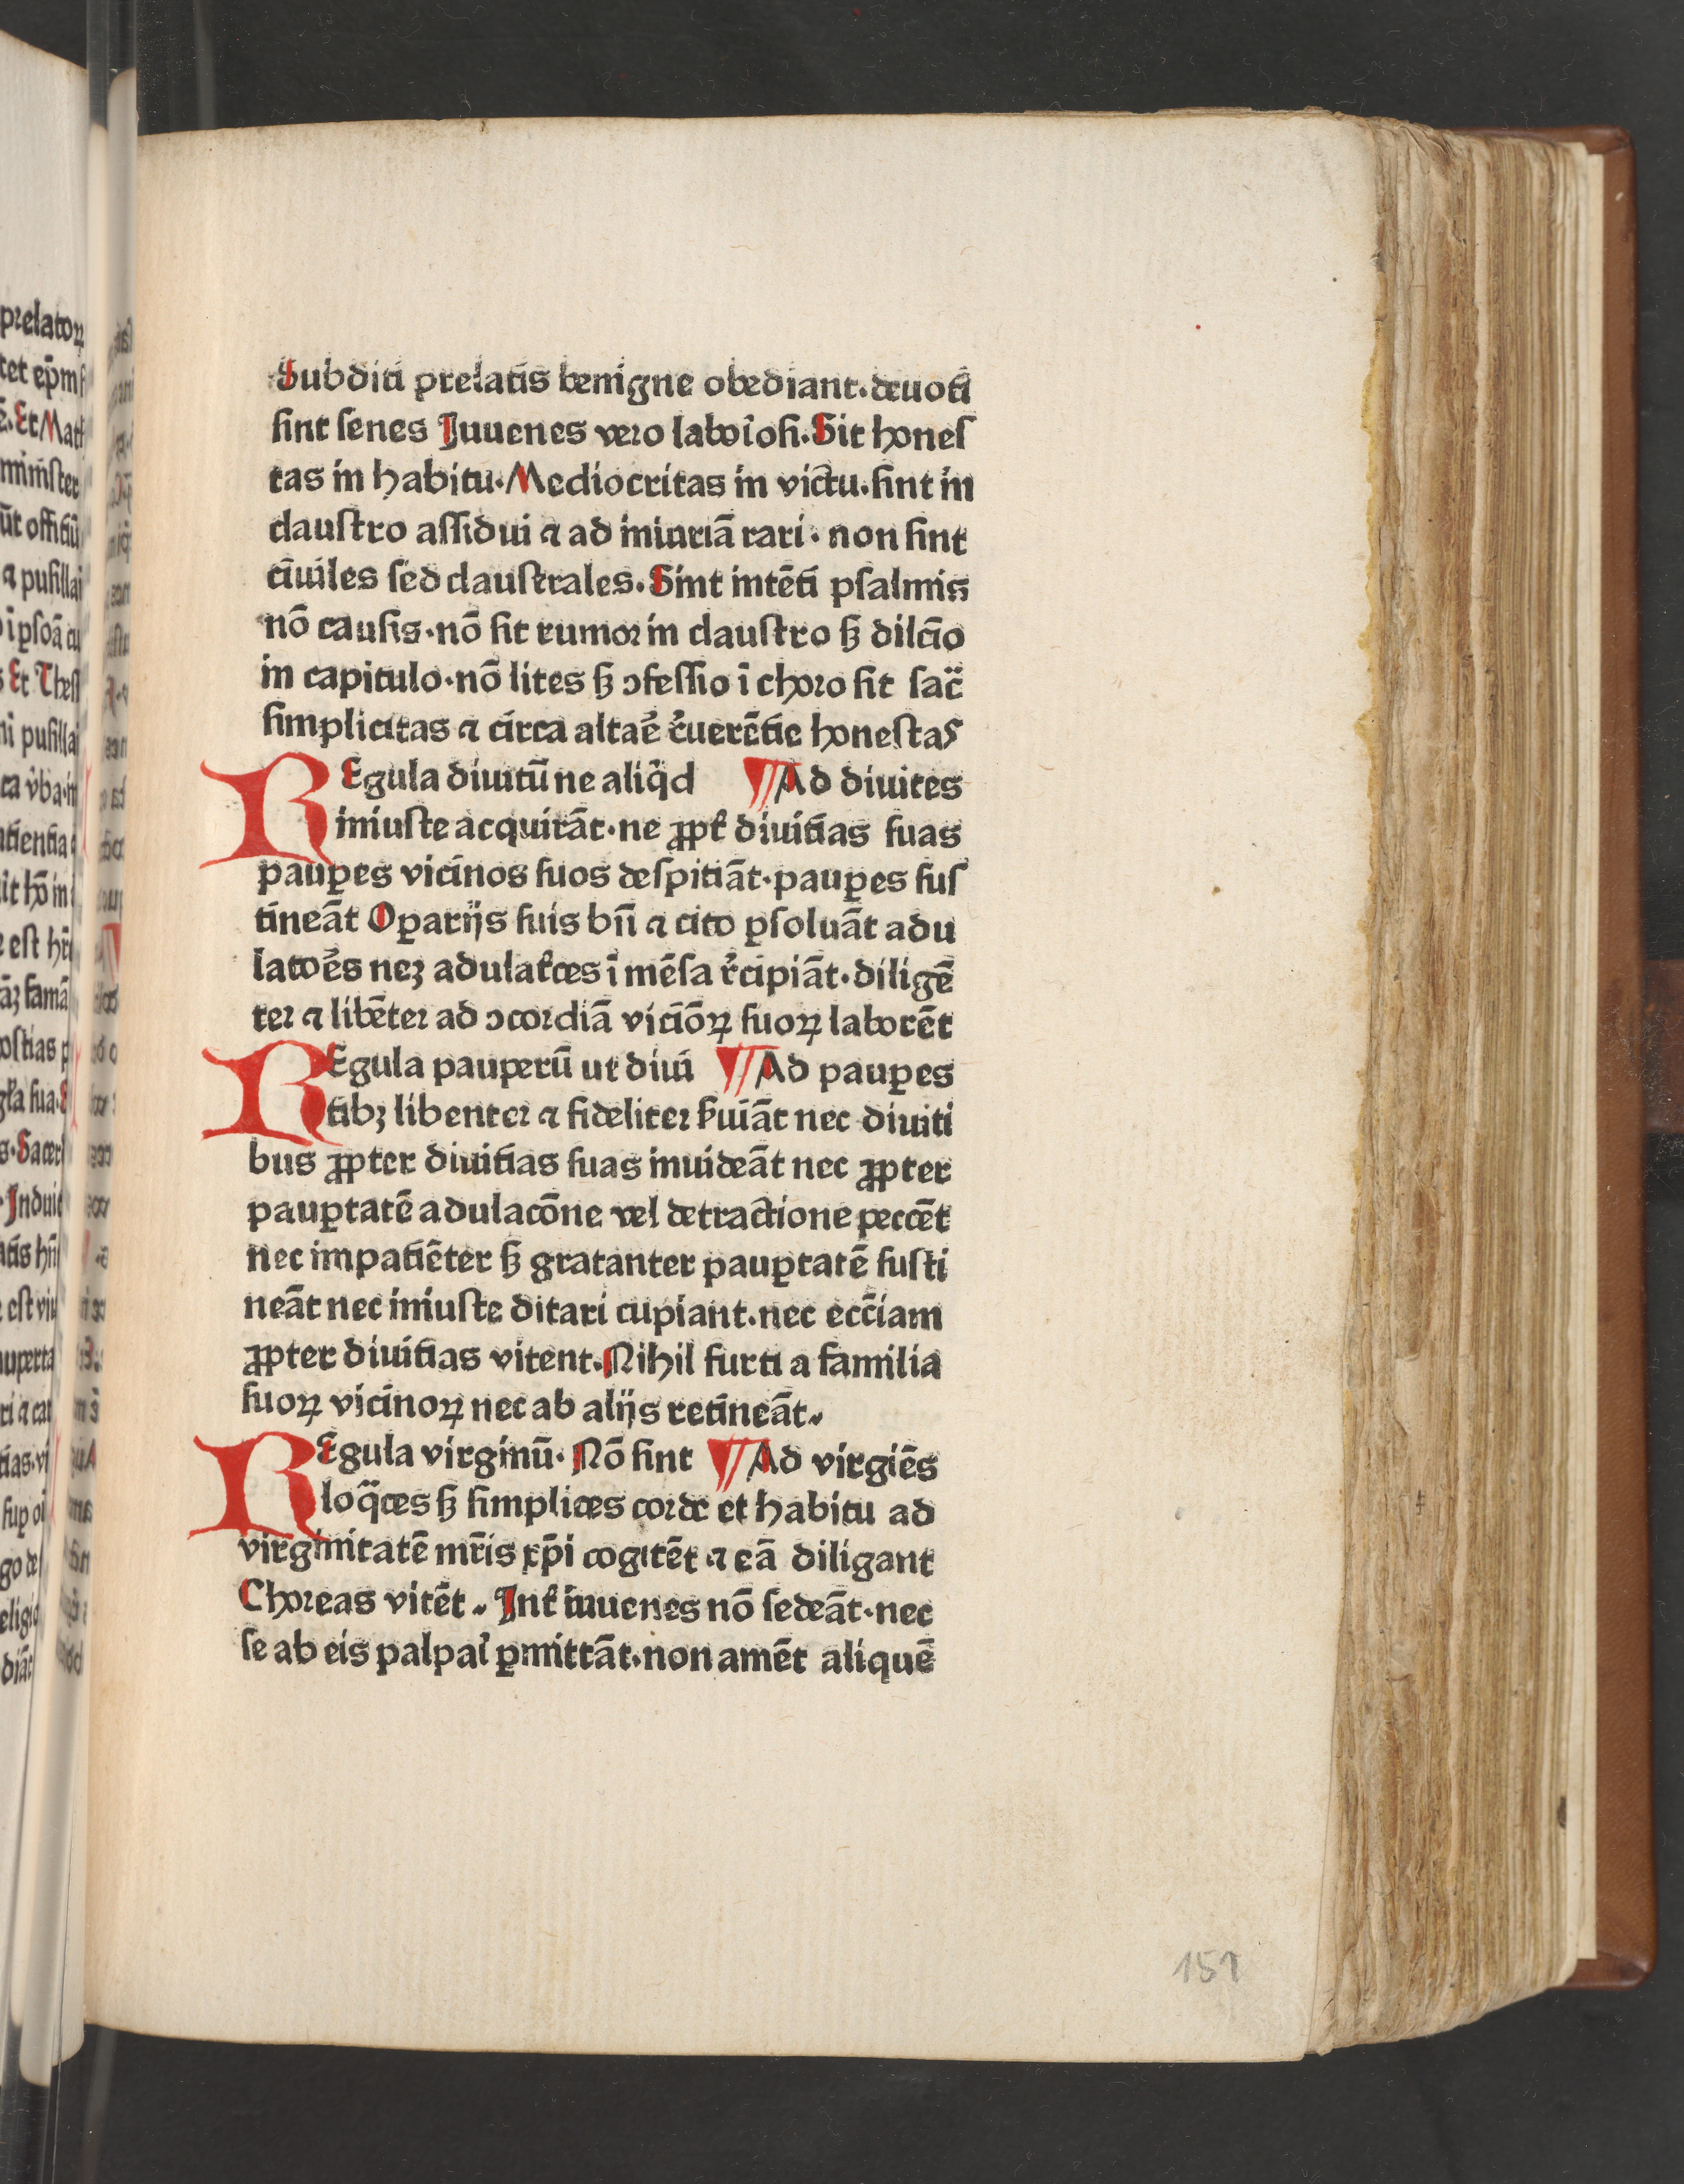 Subditi prelatis benigne obediant. deuoti
sint senes Juuenes vero laboīosi. Sit hones
tas in habitu. Mediocritas in victu. sint in
claustro assidui ⁊ ad iniuriā rari. non sint
ciuiles sed claustrales. Sint intēti psalmis
nō causis. nō sit rumor in claustro sꝫ dilcīo
in capitulo. nō lites sꝫ ꝯfessio ī choro sit sac̄
simplicitas ⁊ circa altaē r̄uerētie honestas
REgula diuitū ne aliqd ¶ Ad diuites
iniuste acquirāt. ne ꝓpt̄ diuitias suas
pauꝑes vicinos suos despitiāt. pauꝑes sus
tineāt Oꝑarijs suis bn̄ ⁊ cito ꝑsoluāt adu
latoēs neꝫ adulat̄ces ī mēsa r̄cipiāt. diligē
ter ⁊ libēter ad ꝯcordiā viciōꝝ suoꝝ laborēt
REgula pauperū ut diui ¶ Ad pauꝑes
tibꝫ libenter ⁊ fideliter s̄uiāt nec diuiti
bus ꝓpter diuitias suas inuideāt nec ꝓpter
pauꝑtatē adulacōne vel detractione peccēt
nec impatiēter sꝫ gratanter pauꝑtatē susti
neāt nec iniuste ditari cupiant. nec ecc̄iam
ꝓpter diuitias vitent. Nihil furti a familia
suoꝝ vicinoꝝ nec ab alijs retineāt.
REgula virginū. Nō sint ¶ Ad virgiēs
loq̄ces sꝫ simplices corde et habitu ad
virginitatē mr̄is xp̄i cogitēt ⁊ eā diligant
Choreas vitēt. Int̄ iuuenes nō sedeāt. nec
se ab eis palpaī ꝑmittāt. non amēt aliquē
151